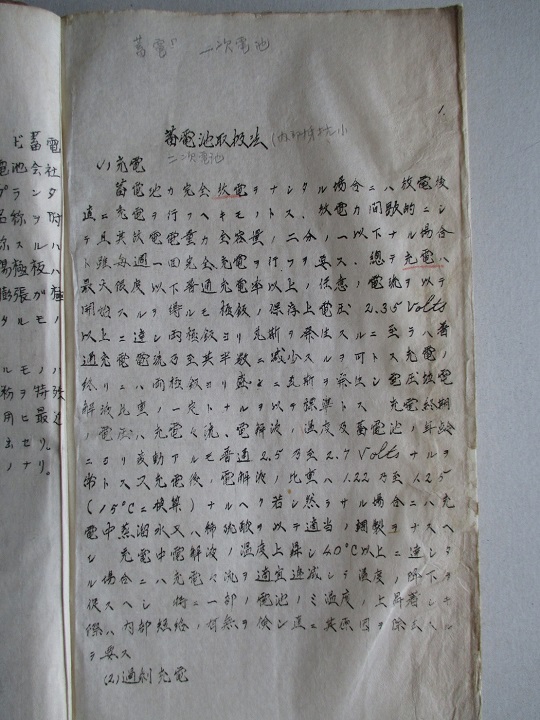 蓄電 二次電池
1.
蓄電池取扱法 (内部抵抗小
二次電池
(1) 充電
蓄電池カ完全放電ヲナシタル場合ニハ放電後
直ニ充電ヲ行フヘキモノトス、放電カ間歇的ニシ
テ且其放電電量カ全容量ノ二分ノ一以下ナル場合
ト雖毎週一回完全充電ヲ行フヲ要ス、總テ充電ハ
最大限度以下普通充電率以上ノ任意ノ電流ヲ以テ
開始スルヲ得ルモ極鈑ノ保存上電圧 2.35 Volts
以上ニ達シ両極鈑ヨリ瓦斯ヲ発生スルニ至ラハ普
通充電電流乃至其半数ニ減少スルヲ可トス充電ノ
終リニハ両極鈑ヨリ盛ニ瓦斯ヲ発生シ電圧及電
解液比重ノ一定トナルヲ以テ標準トス 充電終期
ノ電圧ハ充電々流、電解液ノ温度及蓄電池ノ年齢
ニヨリ変動アルモ普通 2.5 乃至 2.7 Volts ナルヲ
常トス 又充電後ノ電解液ノ比重ハ 1.22 乃至 1.25
(15℃ニ換算) ナルヘク若シ然ラサル場合ニハ充
電中蒸溜水又ハ稀硫酸ヲ以テ適当ノ調製ヲナスヘ
シ 充電中電解液ノ温度上昇シ 40℃以上ニ達シタ
ル場合ニハ充電々流ヲ適宜逓減シテ温度ノ降下ヲ
俟スヘシ 特ニ一部ノ電池ノミ温度ノ上昇著シキ
際ハ内部短絡ノ有無ヲ検シ直ニ其原因ヲ除去スル
ヲ要ス
(2) 過剰充電
ド蓄電
電池会社
プランタ
名称ヲ附
称スルハ
陽極板ハ
膨張ガ極
タルモノ
ルモノハ
用ヒ最近
ノナリ。